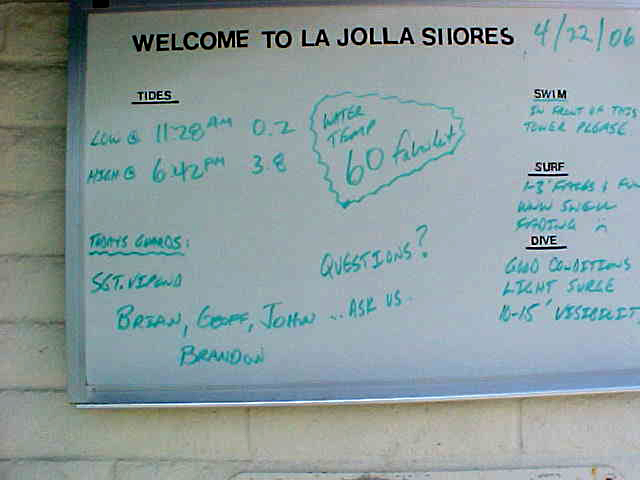 WELCOME TO LA JOLLA SHORES 4/22/06
TIDES
LOW @ 11:28 AM 0.2
HIGH @ 6:42 PM 3.8
WATER
TEMP
60 fabulous!
SWIM
IN FRONT OF THIS
TOWER PLEASE
SURF
1-3' FACES & FUN
WNW SWELL
FADING
DIVE
GOOD CONDITIONS
LIGHT SURGE
10-15' VISIBILITY
TODAYS GUARDS:
SGT.
BRIAN, GEOFF, JOHN
BRANDON
QUESTIONS?
...ASK US.